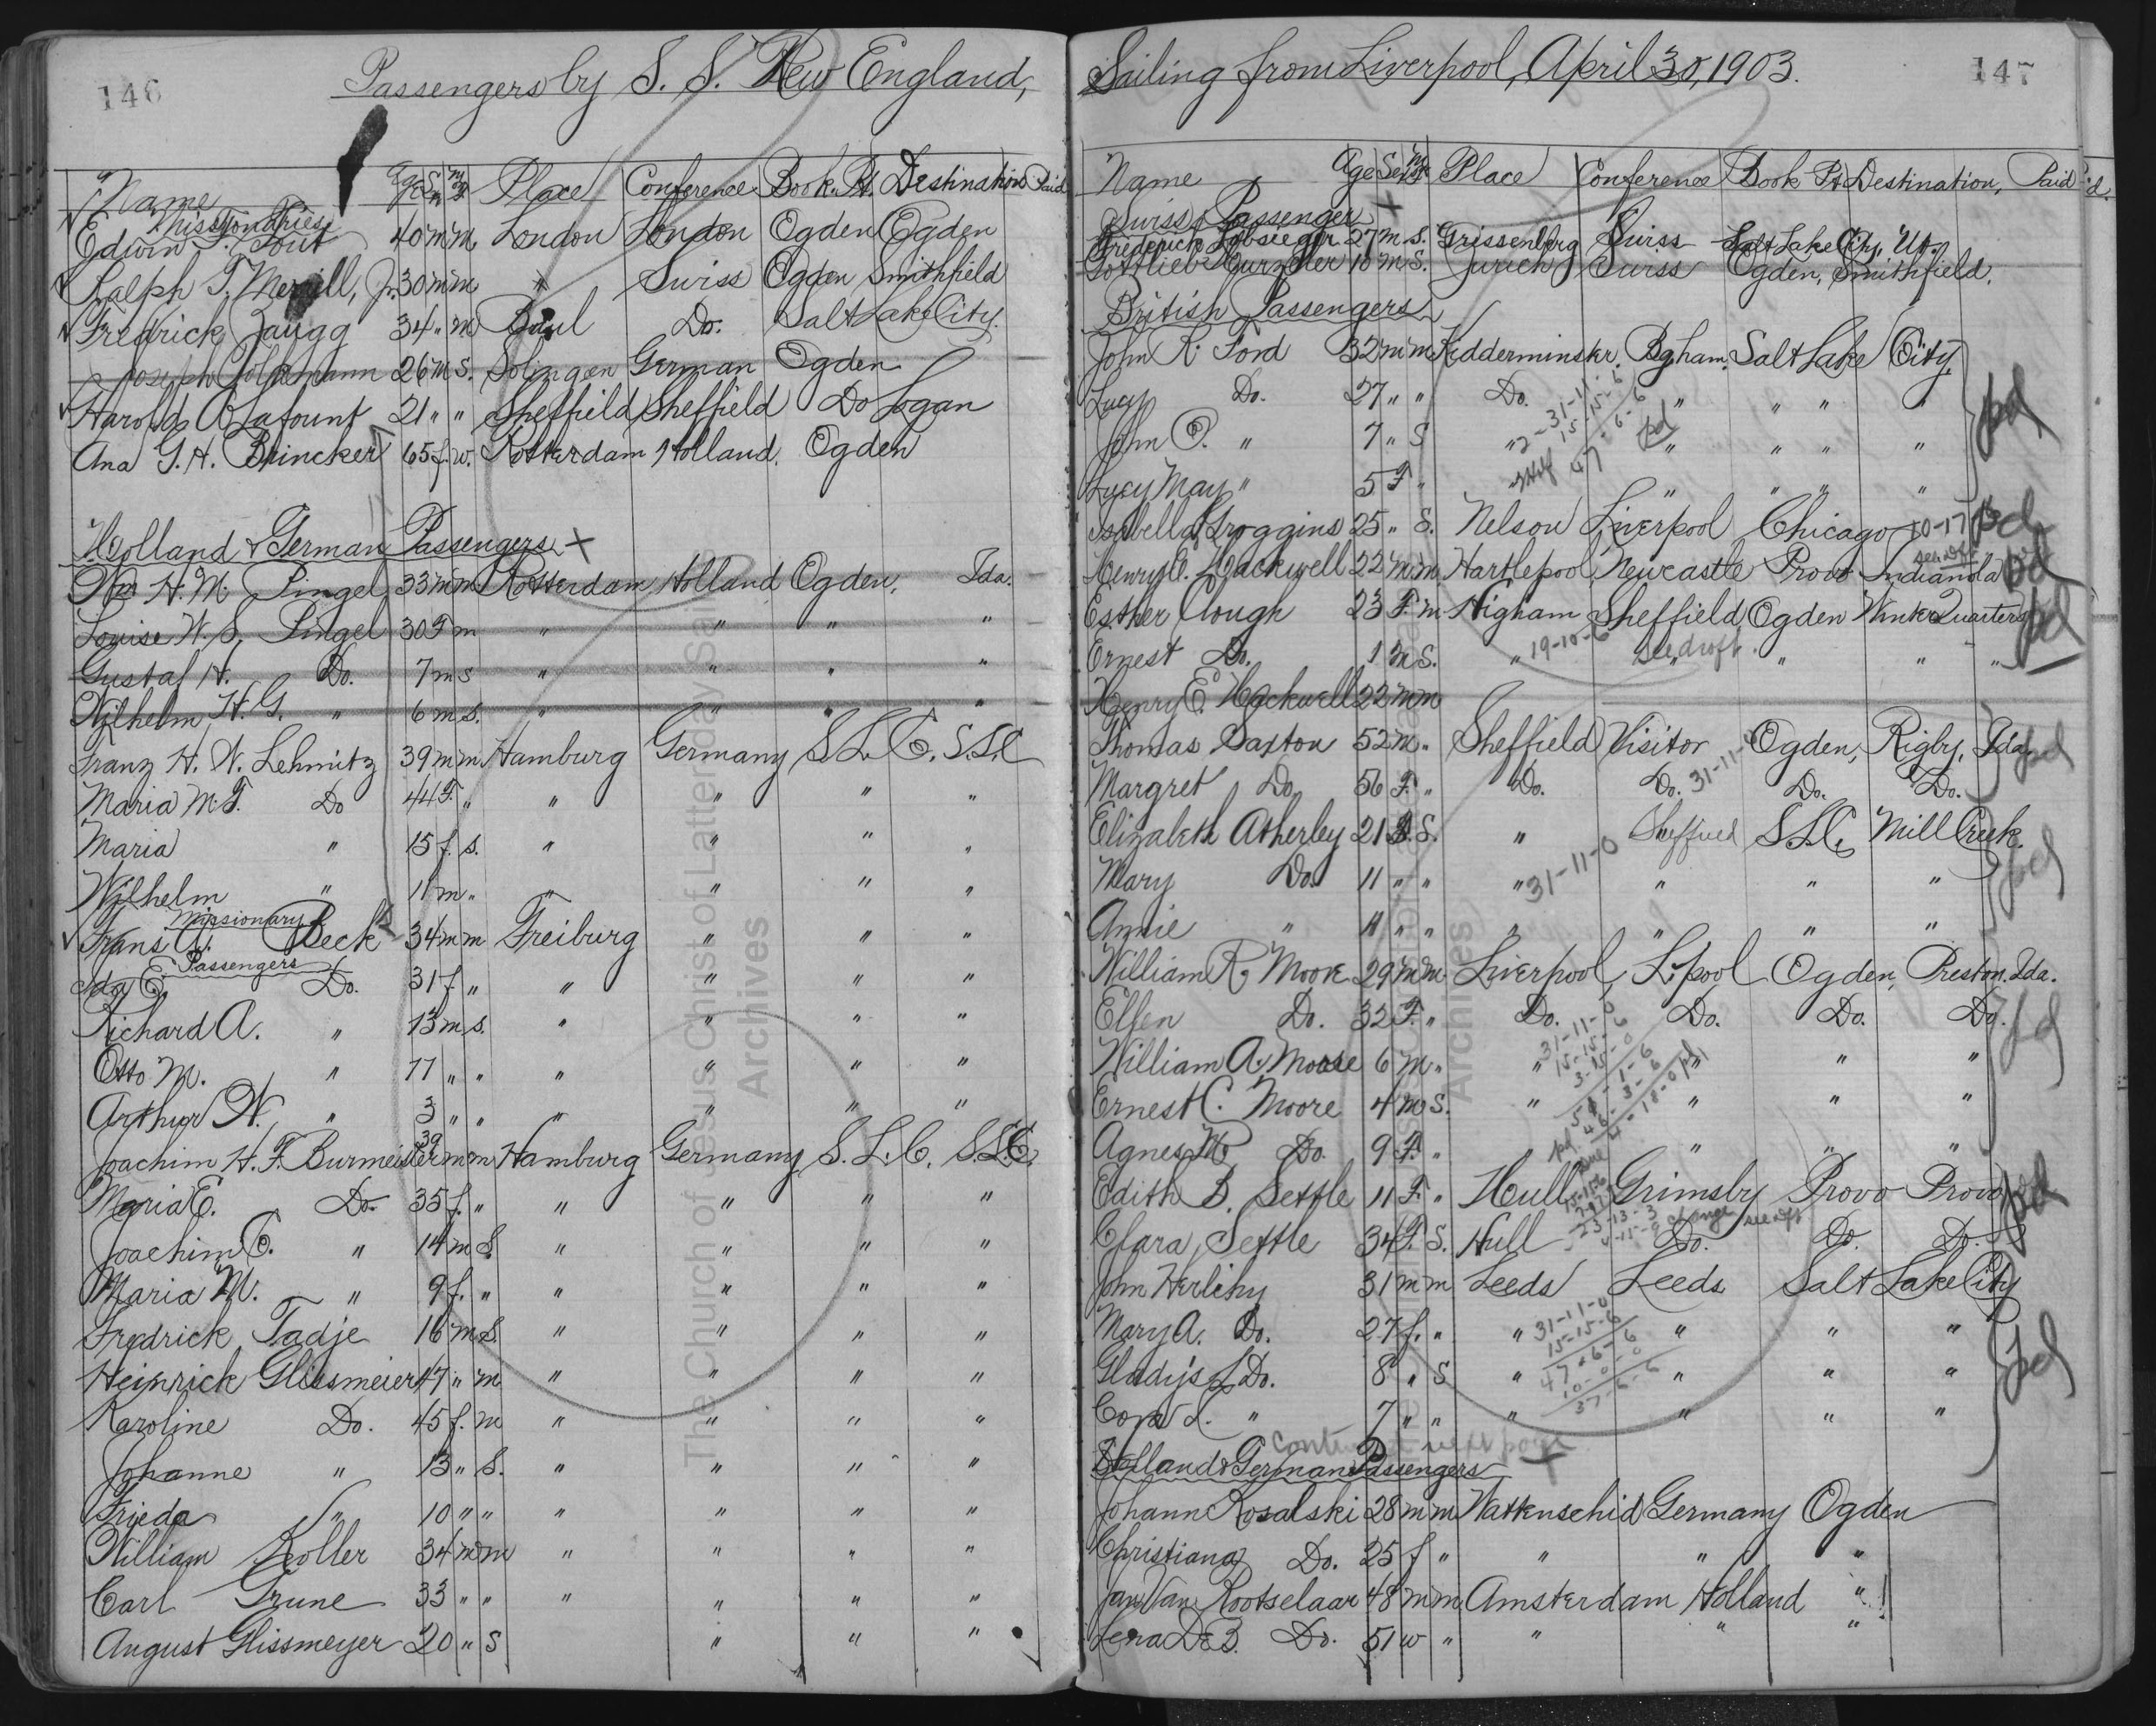 146
Passengers by S. S. New England,
Name Age Sex Place Conference Book Pt. Destination Paid
Missionaries
Edwin F. Tout 40 m m London London Ogden Ogden
Ralph T. Merrill, Jr. 30 m m " Swiss Ogden Smithfield
Fredrick Zaugg 34 " m Basel Do. Salt Lake City.
Joseph 26 m s. Solingen German Ogden
Harold A Lafount 21 " " Sheffield Sheffield Do Logan
Ana G. H. Brincker 65 f. w. Rotterdam Holland. Ogden
Holland & German Passengers
Wm H. M. Pingel 33 m m Rotterdam Holland Ogden, Ida.
Louise W. S. Pingel 30 F m " " " "
Gustaf H. Do. 7 m s " " " "
Wilhelm H. G. " 6 m s. " " " "
Franz H. W. Lehmitz 39 m m Hamburg Germany S L C. S.L.C
Maria M. F. Do 44 F. " " " " "
Maria " 15 f. s. " " " "
Wilhelm " 11 m " " " " "
Missionary
Frans A. Beck 34 m m Freiburg " " "
Passengers
Ida E. Do. 31 f " " " " "
Richard A. " 13 m s. " " " "
Otto M. " 11 " " " " " "
Arthur W. " 3 " " " " " "
Joachim H. F. Burmeister 39 m m Hamburg Germany S. L. C. S.L.C.
Maria E. Do. 35 f. " " " " "
Joachim C. " 14 m S. " " " "
Maria M. " 9 f. " " " " "
Fredrick Tadje 16 m S. " " " "
Heinrick Glissmeier 47 " m " " " "
Karoline Do. 45 f. m " " " "
Johanne " 13 " S. " " " "
Frieda " 10 " " " " " "
William Koller 34 m m " " " "
Carl Grune 33 " " " " " "
August Glissmeyer 20 " S " " "
Sailing from Liverpool, April 30, 1903.
147
Name Age Sex Place Conference Book Pt Destination, Paid
Swiss Passenger
Frederick Lobsieger 27 m. S. Grissenberg Swiss Salt Lake City, Ut.
Gottlieb Wurzeler 10 m S. Zurich Swiss Ogden, Smithfield.
British Passengers
John R. Ford 32 m m Kidderminster. Bgham. Salt Lake City.
Lucy Do. 27 " " Do. " " " "
John O. " 7 " S " " " " "
Lucy May " 5 F " " " " "
pd
2-31-11-
15-15-6
47-6-6
pd
Isabella Groggins 25 " S. Nelson Liverpool Chicago 10-17 pd
Henry E. Hackwell 22 m m Hartlepool Newcastle Provo Indianola pd
Esther Clough 23 F. m Higham Sheffield Ogden Winter Quarters pd
Ernest Do. 1 m S. " 19-10-6 see draft " " "
Henry E. Hackwell 22 m m
Thomas Saxton 52 m " Sheffield Visitor Ogden, Rigby, Ida. pd
Margret Do. 56 F. " Do. Do. 31-11-0 Do. Do.
Elizabeth Atherley 21 F. S. " Sheffield S.L.C. Mill Creek.
Mary Do. 11 " " " 31-11-0 " " " pd
Annie " 11 " " " " " "
William R. Moore 29 m m. Liverpool L.pool Ogden, Preston. Ida.
Ellen Do. 32 F. " Do. Do. Do. Do. pd
William A. Moore 6 m. " " " " "
Ernest C. Moore 4 m S. " " " "
Agnes M. Do 9 F. " " " "
31-11-0
15-15-6
3-15-0
Edith B. Settle 11 F. " Hull Grimsby Provo Provo pd
Clara Settle 34 F. S. Hull Do. Do. Do.
change see draft
John Herlihy 31 m m Leeds Leeds Salt Lake City
Mary A. Do. 27 f. " " " " "
Gladys L Do. 8 " S " " " " pd
Cora L. " 7 " " " " " "
31-11-0
15-15-6
47-6-6
10-0-0
37-6-6
Continued next page
Holland & German Passengers
Johann Rosalski 28 m m Wattenschid Germany Ogden
Christiana Do. 25 f " " " "
Jan Van Rootselaar 48 m m Amsterdam Holland "
Lena De B. Do. 51 w " " " "
The Church of Jesus Christ of Latter-day Saints
Archives